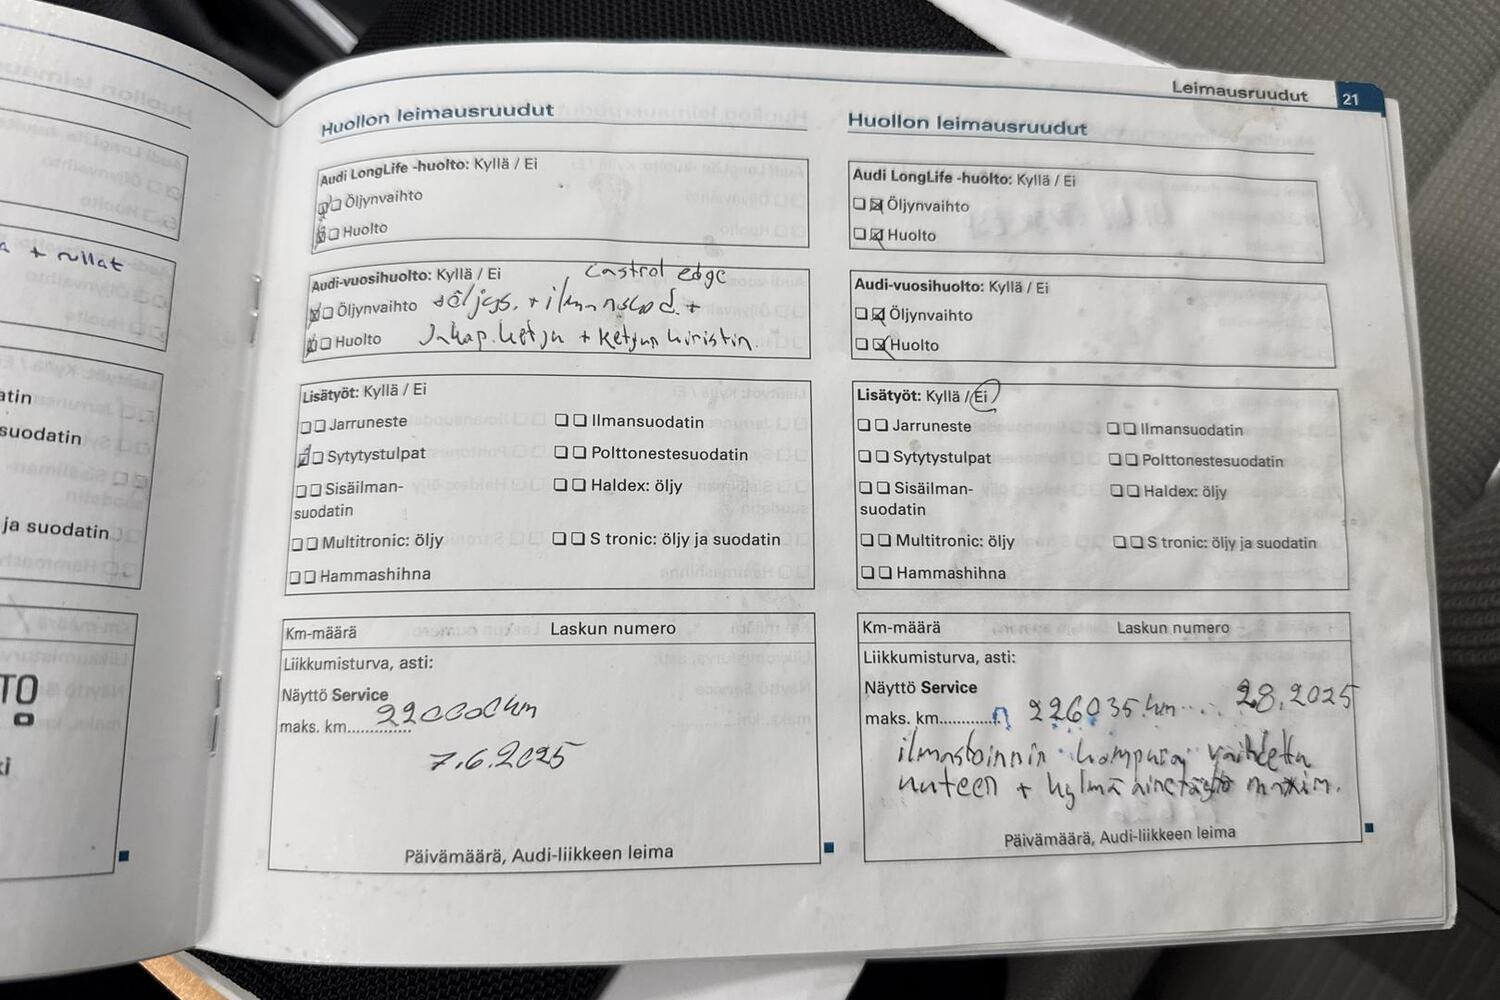 Leimausruudut 21
a + rullat
atin
suodatin
ja suodatin
TO
ki
Huollon leimausruudut
Audi LongLife -huolto: Kyllä / Ei
Öljynvaihto
Huolto
Audi-vuosihuolto: Kyllä / Ei
Castrol edge
Öljynvaihto +öljys. + ilmansuod. +
Huolto Jakap.ketju + ketjun kiristin.
Lisätyöt: Kyllä / Ei
Jarruneste
Ilmansuodatin
Sytytystulpat
Polttonestesuodatin
Sisäilman-
suodatin
Haldex: öljy
Multitronic: öljy
S tronic: öljy ja suodatin
Hammashihna
Km-määrä
Laskun numero
Liikkumisturva, asti:
Näyttö Service
maks. km.............. 220000km
7.6.2025
Päivämäärä, Audi-liikkeen leima
Huollon leimausruudut
Audi LongLife -huolto: Kyllä / Ei
Öljynvaihto
Huolto
Audi-vuosihuolto: Kyllä / Ei
Öljynvaihto
Huolto
Lisätyöt: Kyllä / Ei
Jarruneste
Ilmansuodatin
Sytytystulpat
Polttonestesuodatin
Sisäilman-
suodatin
Haldex: öljy
Multitronic: öljy
S tronic: öljy ja suodatin
Hammashihna
Km-määrä
Laskun numero
Liikkumisturva, asti:
Näyttö Service
maks. km............. 226035.km 2.8.2025
ilmastoinnin kompura vaihdettu
uuteen + kylmäainetäyttö maxim.
Päivämäärä, Audi-liikkeen leima